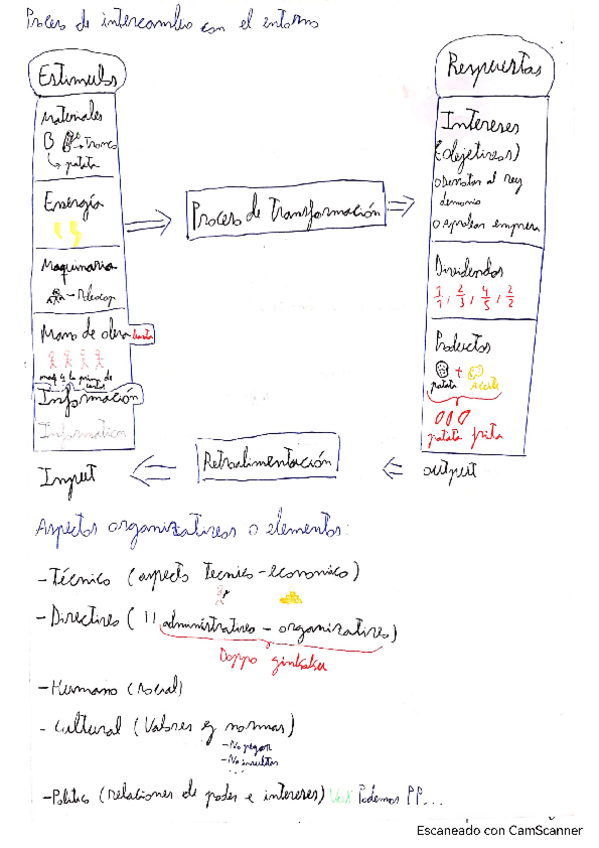 Proceso de intercambio con el entorno
Estimulos
Materiales
→ Tronco
↳ patata
Energía
Maquinaria
Mano de obra barata
Información
Information
Input
⇒
Proceso de Transformación
⇒
Retroalimentación
⇐
⇐
Respuestas
Intereses
(objetivos)
o Derrotar al rey
demonio
o Aprobar empresa
Dividendos
1/1, 2/3, 4/5, 2/2
Productos
+
patata Aceite
patata frita
output
Aspectos organizativos o elementos:
- Técnico (aspecto técnico-económico)
- Directivo ( " administrativo - organizativo)
Doppo
- Humano (social)
- Cultural (Valores y normas)
- No pegar
- No insultar
...
- Político (relaciones de poder e intereses) Podemos PP...
Escaneado con CamScanner